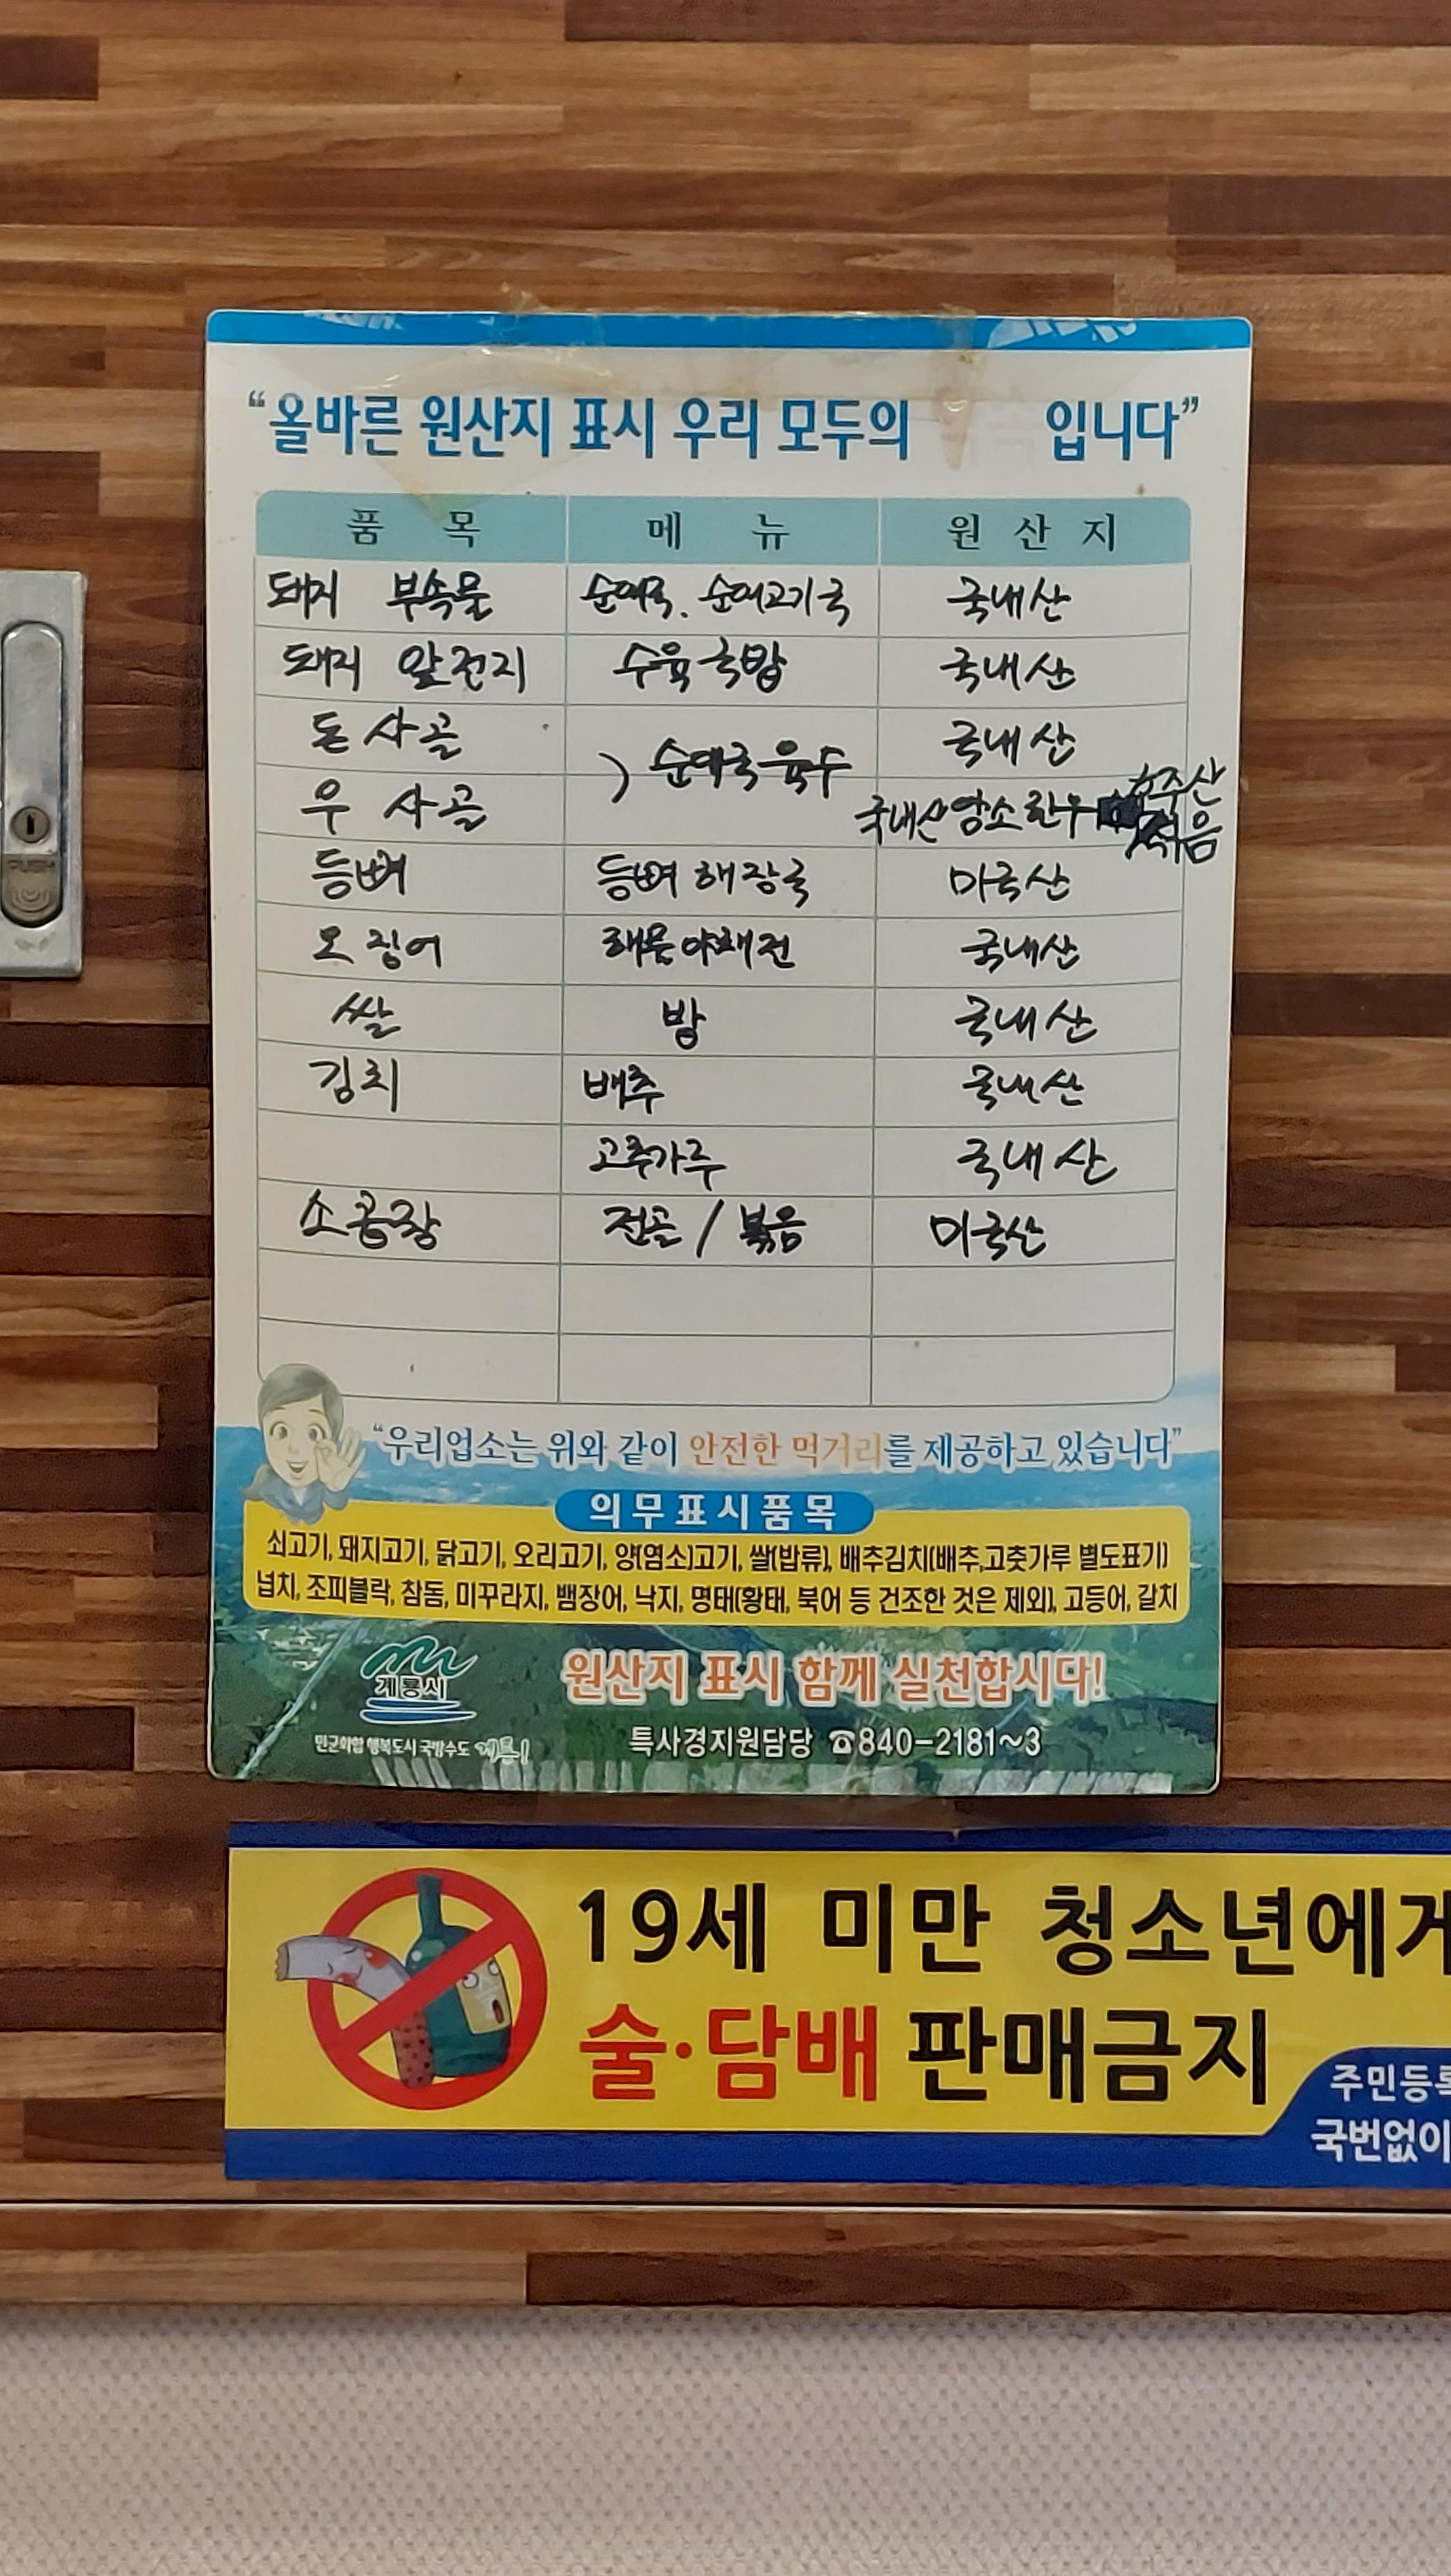 “올바른 원산지 표시 우리 모두의 입니다”
품 목 메 뉴 원 산 지
돼지 부속물 순대국. 순대고기국 국내산
돼지 앞전지 수육국밥 국내산
돈사골 국내산
) 순대국육수
우 사골 국내산 한우 호주산 섞음
등뼈 등뼈해장국 미국산
오징어 해물야채전 국내산
쌀 밥 국내산
김치 배추 국내산
고추가루 국내산
소곱창 전골 / 볶음 미국산
“우리업소는 위와 같이 안전한 먹거리를 제공하고 있습니다”
의무표시품목
쇠고기, 돼지고기, 닭고기, 오리고기, 양(염소)고기, 쌀(밥류), 배추김치(배추,고춧가루 별도표기)
넙치, 조피볼락, 참돔, 미꾸라지, 뱀장어, 낙지, 명태(황태, 북어 등 건조한 것은 제외), 고등어, 갈치
계룡시
원산지 표시 함께 실천합시다!
민군화합 행복도시 국방수도 계룡!
특사경지원담당 ☎840-2181~3
19세 미만 청소년에게
술·담배 판매금지
주민등록
국번없이
PUSH